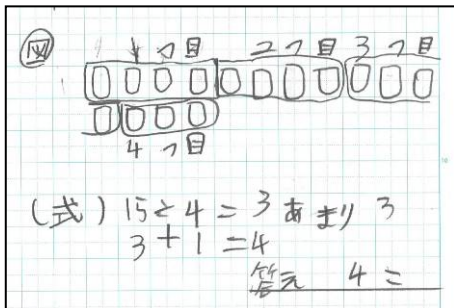 図 1つ目 2つ目 3つ目
4つ目
(式) 15÷4=3あまり3
3+1=4
答え 4こ